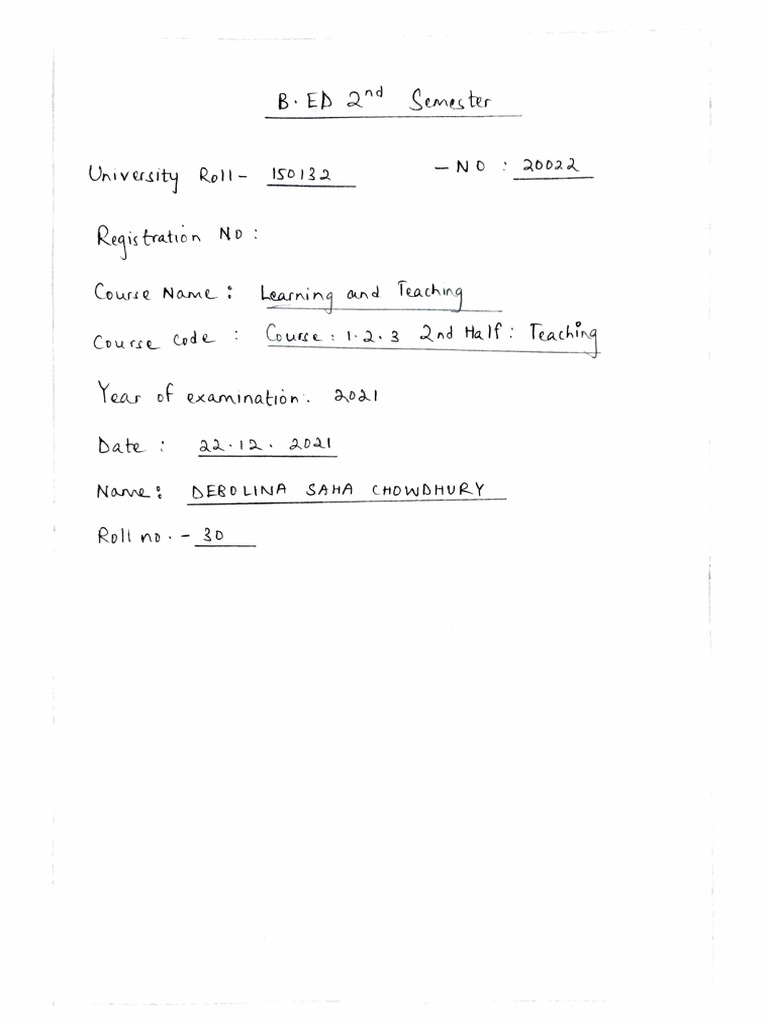 B.ED 2nd Semester
University Roll- 150132 - NO : 20022
Registration NO :
Course Name : Learning and Teaching
Course code : Course : 1.2.3 2nd Half : Teaching
Year of examination. 2021
Date : 22.12.2021
Name : DEBOLINA SAHA CHOWDHURY
Roll no. - 30